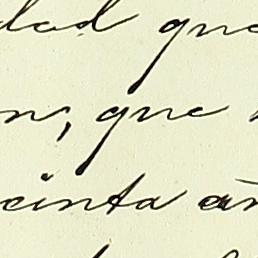 dad que
n, que
cinta añ